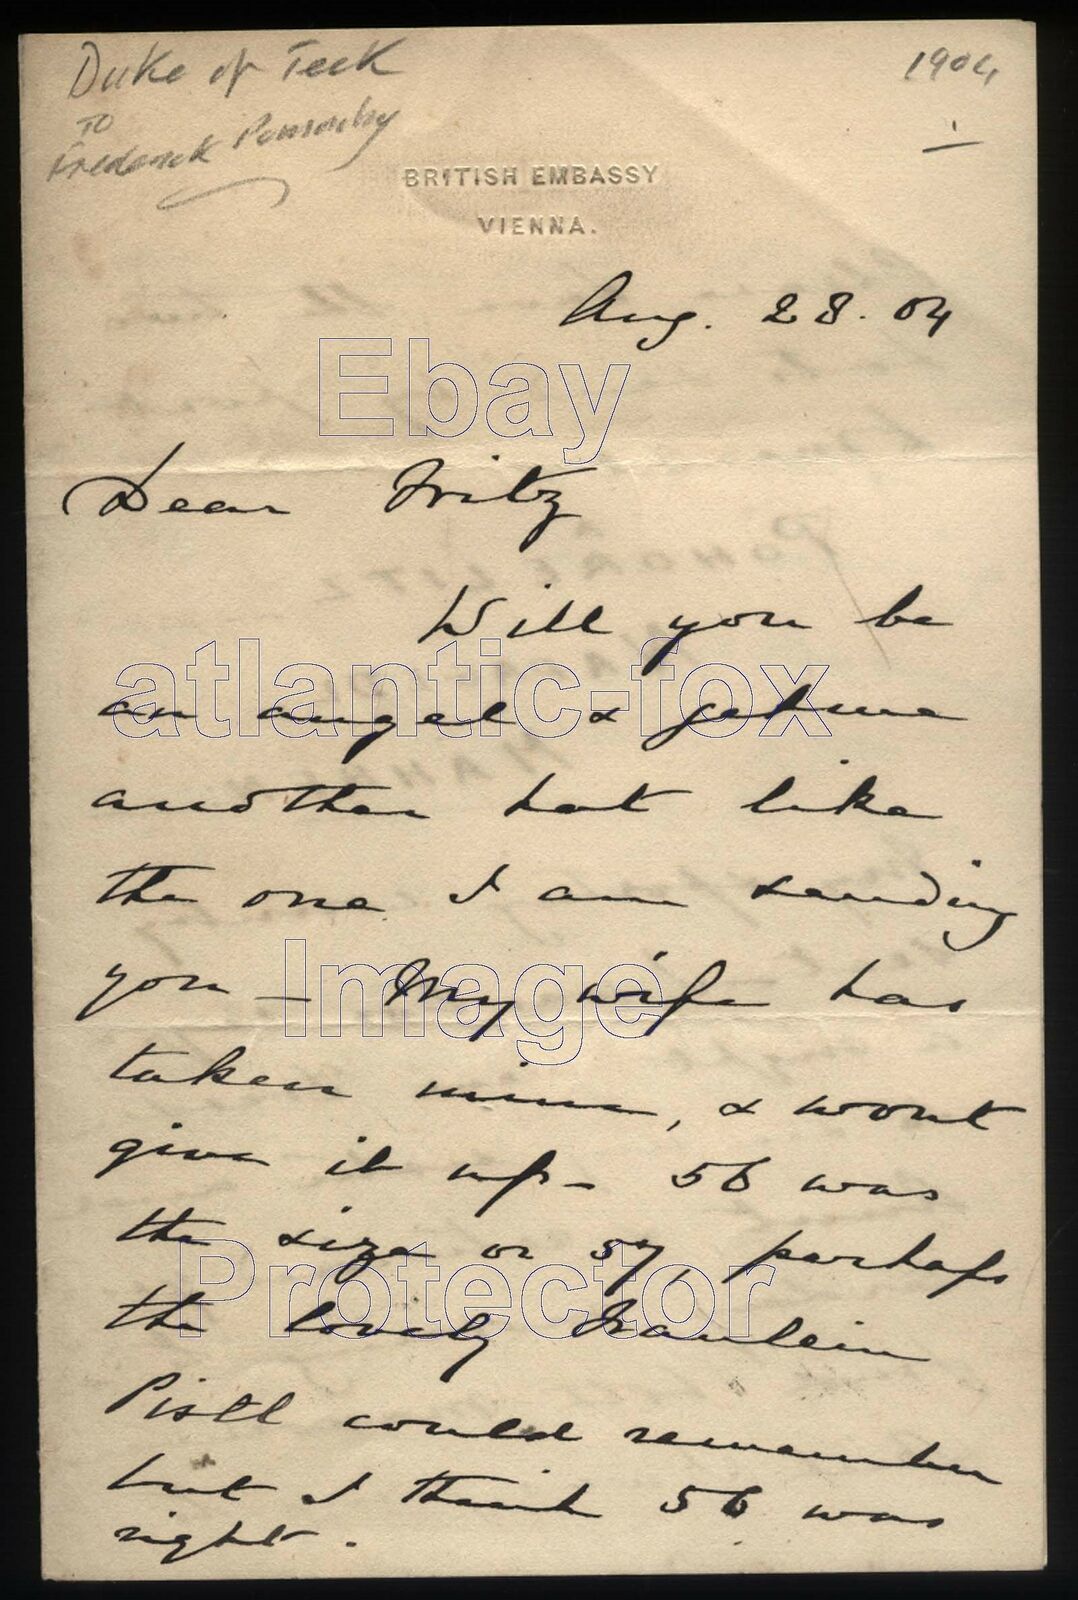 Duke of Teck
1904
TO
Frederick Ponsonby
BRITISH EMBASSY
VIENNA.
Aug. 28. 04
Ebay
Dear Fritz
Will you be
atlantic-fox
an angel & get me
another hat like
the one I am sending
Image
you - My wife has
taken mine, & wont
give it up - 56 was
the size or 57, perhaps
Protector
the lovely Fraulein
Pistl could remember
but I think 56 was
right.